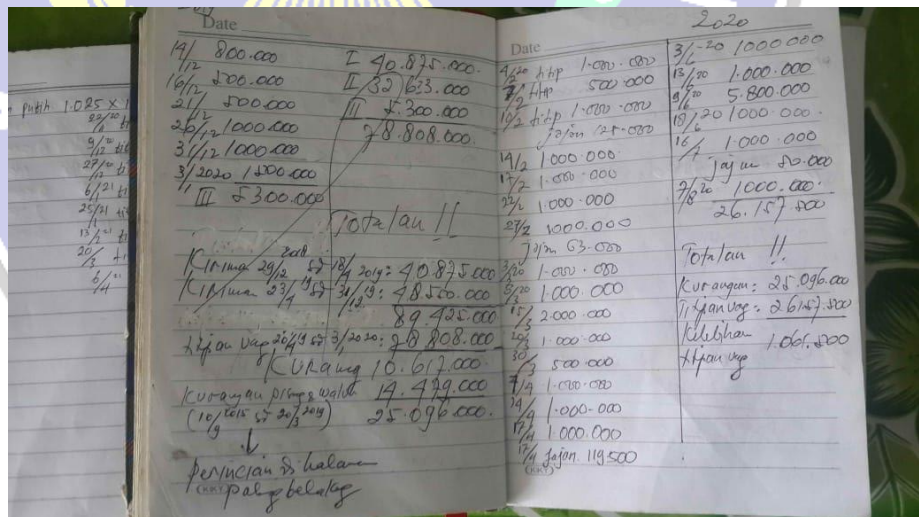 putih 1.025 x 1
22/20
9/20
27/20
6/21
25/21
13/21
20/3
6/21
2019
Date
14/12 800.000
16/12 500.000
21/12 500.000
26/12 1000.000
31/12 1000.000
3/1 2020 1500.000
III 5300.000
I 40.875.000.
II 32.633.000
III 5.300.000
78.808.000
Totalan !!
Kiriman 29/12 2018 s/d 18/4 2019: 40.875.000
Kiriman 23/4 19 s/d 31/12 19: 48.550.000
89.425.000
titipan uang 20/4 19 s/d 3/1 2020: 78.808.000
Kurang 10.617.000
14.479.000
25.096.000.
perincian di halaman
paling belakang
Date
2020
4/20 titip 1.000.000
7/2 titip 500.000
10/2 titip 1.000.000
jajan 125.000
14/2 1.000.000
17/2 1.000.000
22/2 1.000.000
27/2 1000.000
jajan 63.000
3/20 1.000.000
5/20 1.000.000
15/3 2.000.000
1.000.000
30/3 500.000
7/4 1.000.000
14/4 1.000.000
17/4 1.000.000
17/4 jajan 119.500
3/6-20 1000.000
13/20 1.000.000
9/20 5.800.000
18/6 20 1000.000
16/7 1.000.000
jajan 50.000
7/8 20 1000.000.
26.157.500
Totalan !!
Kurangan: 25.096.000
Titipan uang: 26157.500
Kelebihan 1.061.500
titipan uang